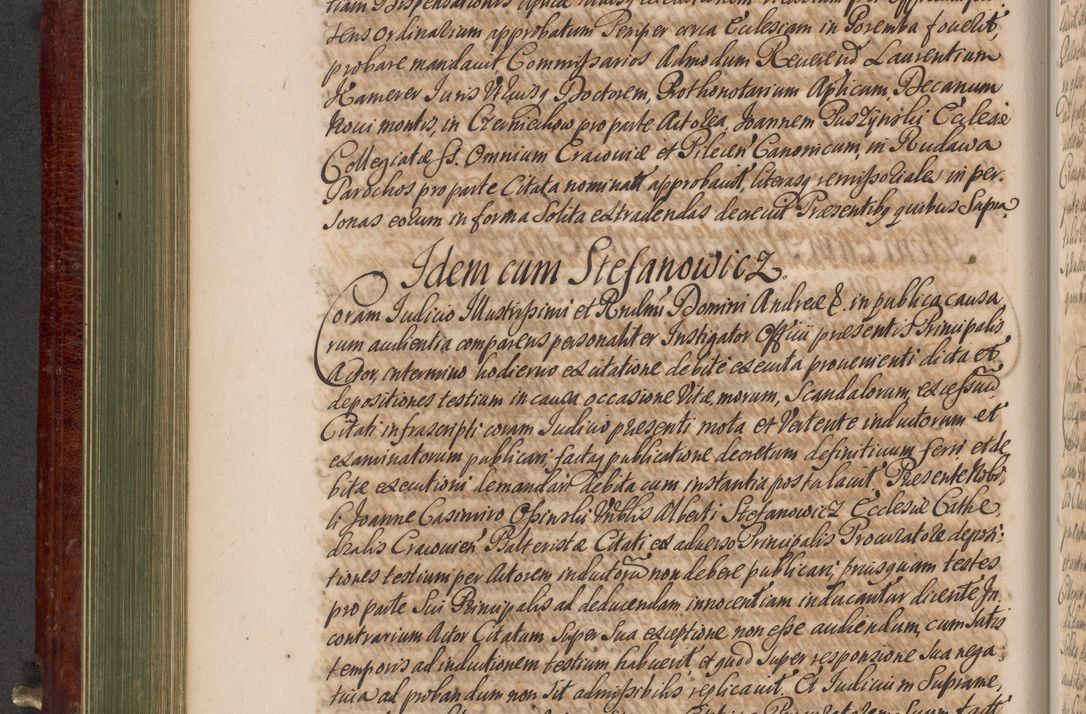 tens ordinarium approbatum semper circa Ecclesiam in Poremba fouerit,
probare mandauit Commissarios Admodum Reuerend Laurentium
Kamerer Juris Vtriusq Doctorem, Prothonotarium Aplicum, Decanum
Noui montis, in Czernichow pro parte Actorea, Joannem Puszynski Ecclesiæ
Collegiatæ SS. Omnium Cracouiæ et Pilecen Canonicum, in Rudawa
Parochos pro parte Citata nominatt approbauit, literasq remissoriales in per-
sonas eorum in forma solita extradendas decreuit Præsentibq quibus supra
Idem cum Stefanowicz.
Coram Judicio Illustrissimi et Rndmi Domini Andreæ &. in publica causa
rum audientia comparens personaliter Instigator Officii præsentis Principalis
Actor, in termino hodierno ex citatione debite executa prouenienti dicta et
depositiones testium in causa occasione Vitæ, morum, Scandalorum, excessuū
Citati infrascripti coram Judicio præsenti mota et Vertente inductorum et
examinatorum publicari, factaq publicatione decretum definitiuum ferri et de
bitæ executioni demandari debita cum instantia postulauit. Præsente Nobi
li Joanne Casimiro Osinski Vnblis Alberti Stefanowicz Ecclesiæ Cathe
dralis Cracouien Psalteristæ Citati ex aduerso Principalis Procuratore deposi:
tiones testium per Actorem inductorū non debere publicari, priusquam testes
pro parte sui Principalis ad deducendam innocentiam inducantur dicente. In
contrarium Actor Citatum super sua exceptione non esse audiendum, cum satis
temporis ad inductionem testium habuerit, et quod super responsione sua nega
tiua ad probandum non sit admissibilis replicauit. Et Iudicium suprame,